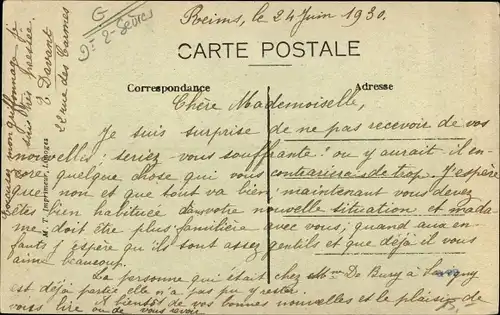 Reims, le 24 Juin 1930.
CARTE POSTALE
Correspondance
Adresse
Chère Mademoiselle,
Je suis surprise de ne pas recevoir de vos
nouvelles; seriez vous souffrante? ou y aurait il en-
core quelque chose qui vous contrarierais de trop. J'espère
que non et que tout va bien; maintenant vous devez
êtes bien habituée dans votre nouvelle situation et mada-
me doit être plus familière avec vous; quand aux en-
fants j'espère qu'ils sont assez gentils et que déjà il vous
aime beaucoup.
La personne qui était chez Mme De Bary à
est déjà partie elle n'a pas pu y rester.
A bientôt de vos bonnes nouvelles et le plaisir de
vous lire ou de vous revoir.
Excusez mon griffonnage je
suis très pressée
E. Davant
22 rue des Carmes
Dt 2-Sèvres
G
Imprimeur, Limoges